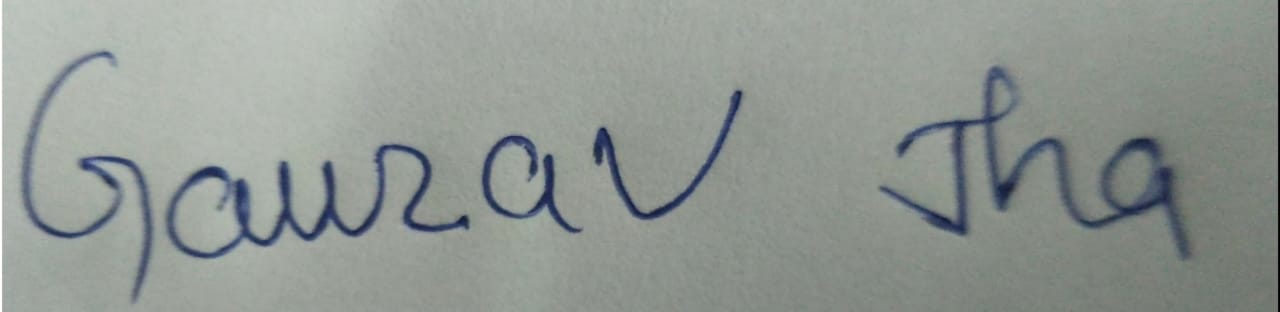 Gaurav Jha